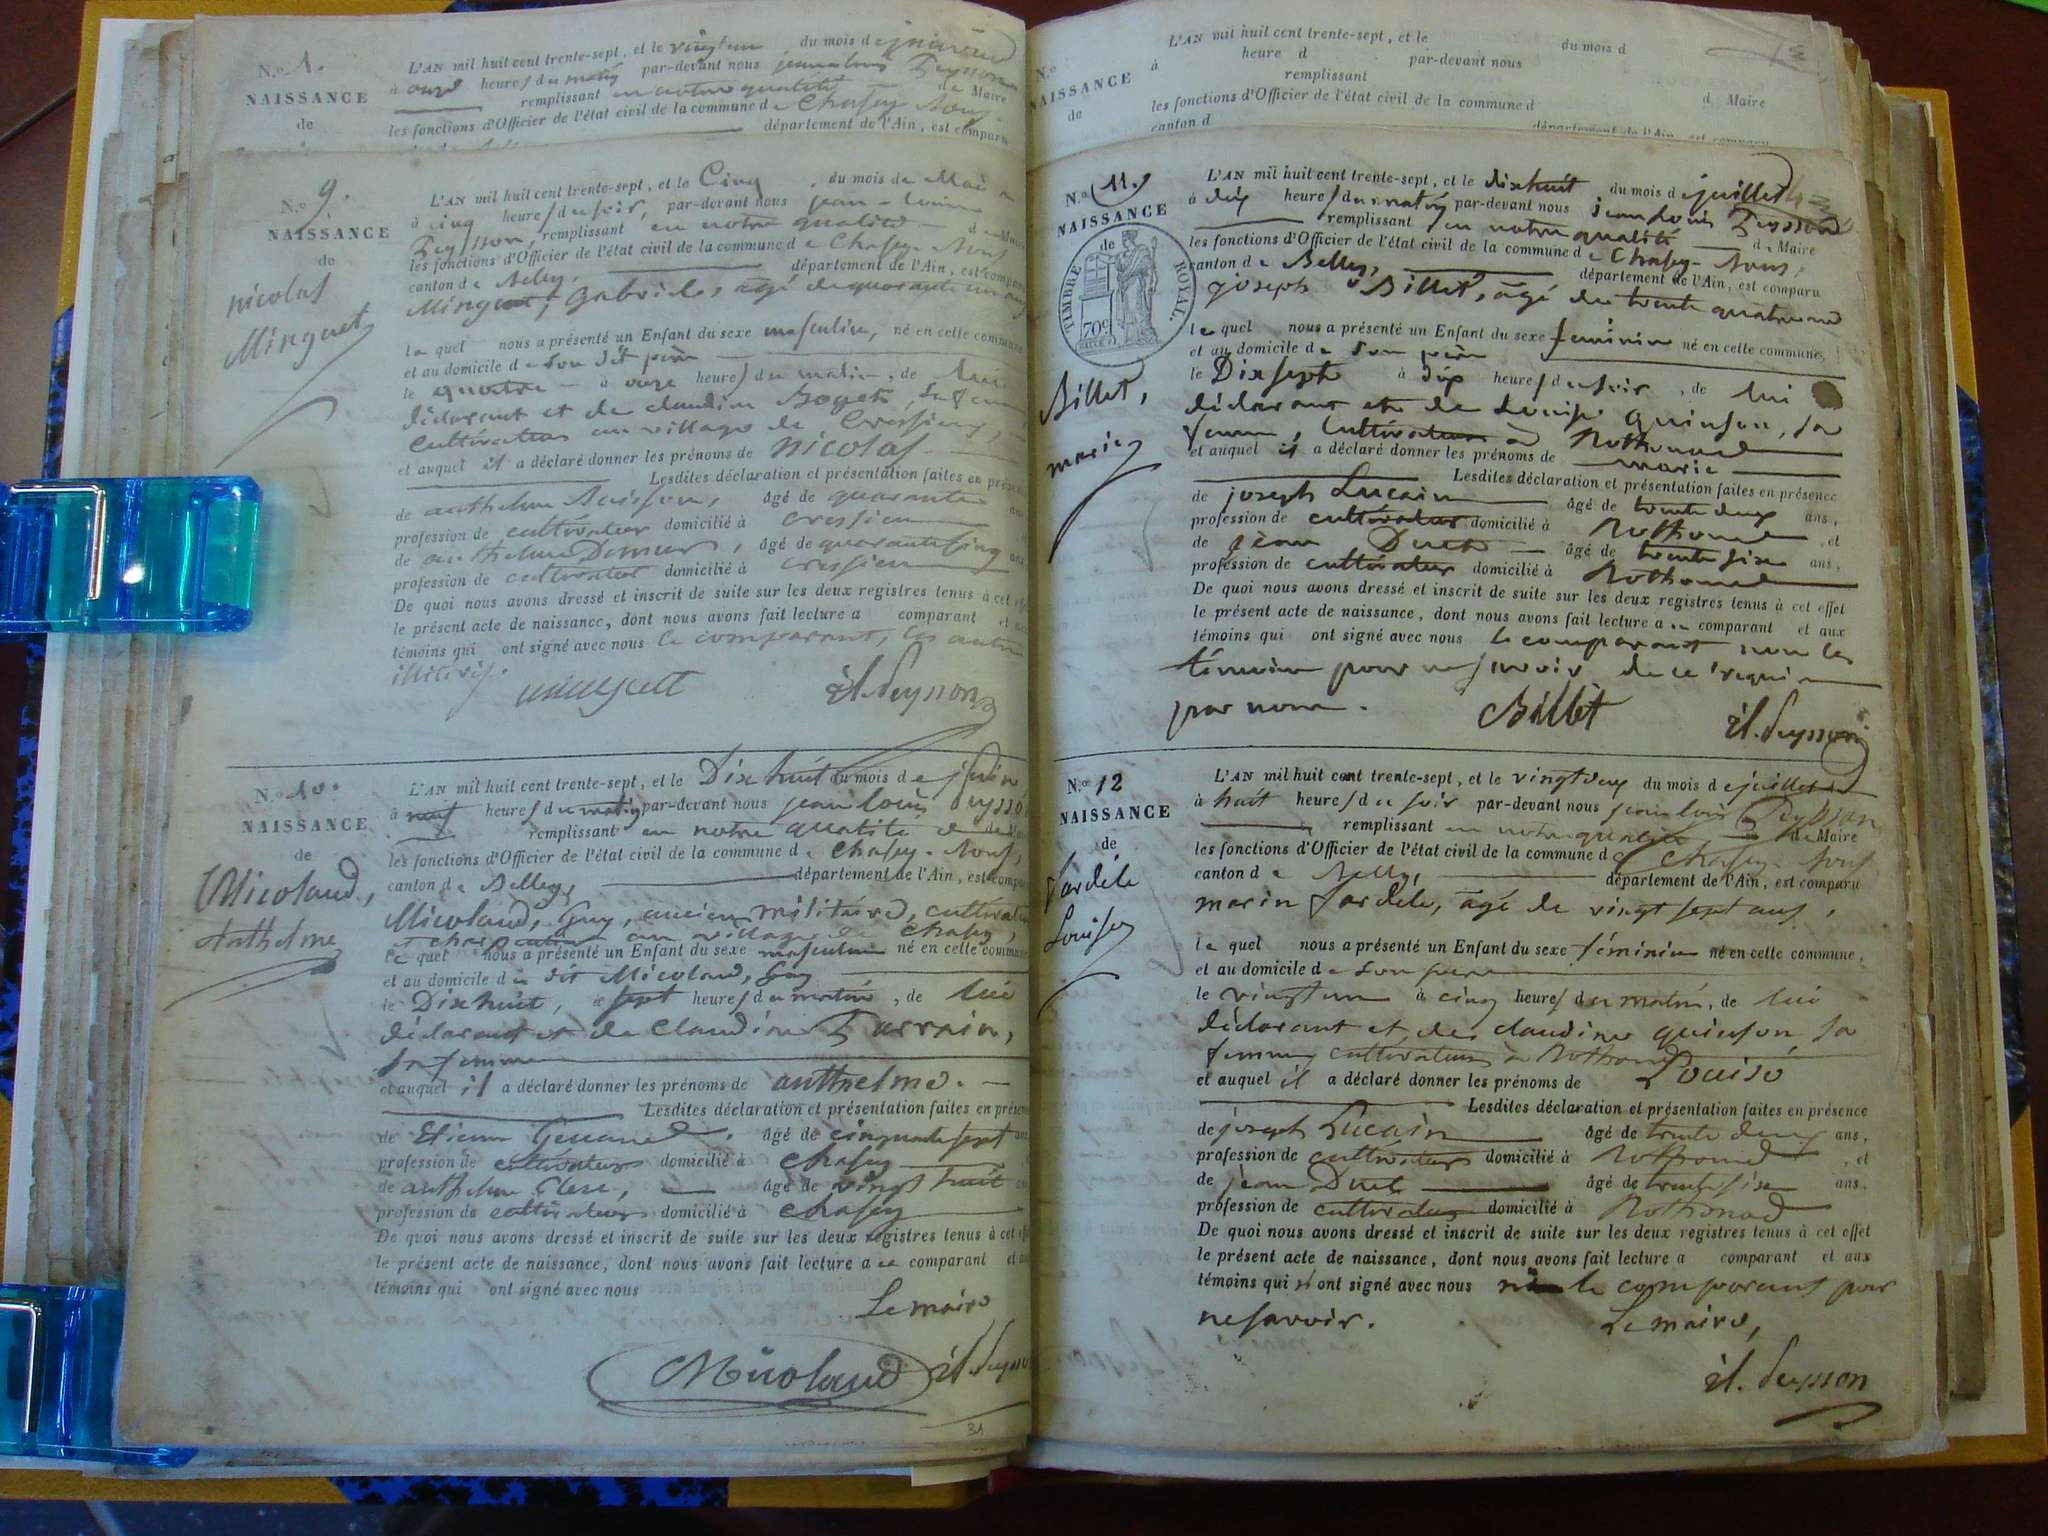 N.o 1.
NAISSANCE
de
L'AN mil huit cent trente-sept, et le vingt un du mois de janvier
à onze heures du matin par-devant nous jean louis Peysson
remplissant en notre qualité de Maire
les fonctions d'Officier de l'état civil de la commune de Chasey-Bons
département de l'Ain, est comparu
N.o 9.
NAISSANCE
de
nicolas
Minguet
L'AN mil huit cent trente-sept, et le Cinq du mois de Mai
à cinq heures du soir, par-devant nous jean-louis
Peysson, remplissant en notre qualité de Maire
les fonctions d'Officier de l'état civil de la commune de Chasey-Bons
canton de Belley, département de l'Ain, est comparu
Minguet, Gabriel, âgé de quarante un ans
lequel nous a présenté un Enfant du sexe masculin, né en cette commune
et au domicile de son dit père
le quatre à onze heures du matin, de lui
déclarant et de claudine Boget, sa femme
cultivateurs au village de Cressieu,
et auquel il a déclaré donner les prénoms de nicolas
Lesdites déclaration et présentation faites en présence
de anthelme âgé de quarante ans
profession de cultivateur domicilié à cressieu
de anthelme âgé de quarante cinq ans
profession de cultivateur domicilié à cressieu
De quoi nous avons dressé et inscrit de suite sur les deux registres tenus à cet effet
le présent acte de naissance, dont nous avons fait lecture a comparant et aux
témoins qui ont signé avec nous le comparant, les autres
illitérés.
minguett èl. Peysson
N.o 10.
NAISSANCE
de
Micoland,
Anthelme
L'AN mil huit cent trente-sept, et le Dix huit du mois de juin
à neuf heures du matin, par-devant nous jean louis Peysson
remplissant en notre qualité de Maire
les fonctions d'Officier de l'état civil de la commune de Chasey-Bons,
canton de Belley, département de l'Ain, est comparu
Micoland, Guy, ancien militaire, cultivateur
et charpentier au village de Chasey,
lequel nous a présenté un Enfant du sexe masculin né en cette commune
et au domicile du dit Micoland, Guy
le Dixhuit, à sept heures du matin, de lui
déclarant et de Claudine Parrain,
sa femme
et auquel il a déclaré donner les prénoms de anthelme.
Lesdites déclaration et présentation faites en présence
de Etienne âgé de cinquante sept ans
profession de cultivateur domicilié à Chasey
de anthelme Clerc, âgé de vingt huit ans
profession de cultivateur domicilié à Chasey
De quoi nous avons dressé et inscrit de suite sur les deux registres tenus à cet effet
le présent acte de naissance, dont nous avons fait lecture a ce comparant et aux
témoins qui ont signé avec nous
Le maire
Micoland èl. Peysson
31
N.o
NAISSANCE
de
L'AN mil huit cent trente-sept, et le du mois d
à heure d par-devant nous
remplissant d Maire
les fonctions d'Officier de l'état civil de la commune d
canton d département de l'Ain, est comparu
N.o 11.
NAISSANCE
de
TIMBRE ROYAL.
70c
Billet,
marie
L'AN mil huit cent trente-sept, et le dixhuit du mois de juillet
à dix heures du matin par-devant nous jean louis Peysson
remplissant en notre qualité de Maire
les fonctions d'Officier de l'état civil de la commune de Chasey-Bons,
canton de Belley, département de l'Ain, est comparu
joseph Billet, âgé de trente quatre ans
lequel nous a présenté un Enfant du sexe feminin né en cette commune,
et au domicile de son père
le Dixsept à dix heures du soir, de lui
déclarant et de Louise quinson, sa
femme, cultivateurs à Rothonod
et auquel il a déclaré donner les prénoms de marie
Lesdites déclaration et présentation faites en présence
de joseph Lucain âgé de trente deux ans,
profession de cultivateur domicilié à Rothonod, et
de jean Duet âgé de trente six ans,
profession de cultivateur domicilié à Rothonod
De quoi nous avons dressé et inscrit de suite sur les deux registres tenus à cet effet
le présent acte de naissance, dont nous avons fait lecture a ce comparant et aux
témoins qui ont signé avec nous le comparant non les
témoins pour ne savoir de ce requis
par nous.
Billet èl. Peysson
N.o 12
NAISSANCE
de
fardèle
Louise
L'AN mil huit cent trente-sept, et le vingt deux du mois de juillet
à huit heures du soir par-devant nous jean louis Peysson
remplissant en notre qualité de Maire
les fonctions d'Officier de l'état civil de la commune de Chasey-Bons
canton de Belley, département de l'Ain, est comparu
marin fardèle, âgé de vingt sept ans,
lequel nous a présenté un Enfant du sexe féminin né en cette commune,
et au domicile de son père
le vingt un à cinq heures du matin, de lui
déclarant et de claudine quinson, sa
femme cultivateurs à Rothonod
et auquel il a déclaré donner les prénoms de Louise
Lesdites déclaration et présentation faites en présence
de joseph Lucain âgé de trente deux ans,
profession de cultivateur domicilié à Rothonod, et
de jean Duet âgé de trente six ans,
profession de cultivateur domicilié à Rothonod
De quoi nous avons dressé et inscrit de suite sur les deux registres tenus à cet effet
le présent acte de naissance, dont nous avons fait lecture a comparant et aux
témoins qui n'ont signé avec nous ni le comparant pour
ne savoir. Le maire,
èl. Peysson